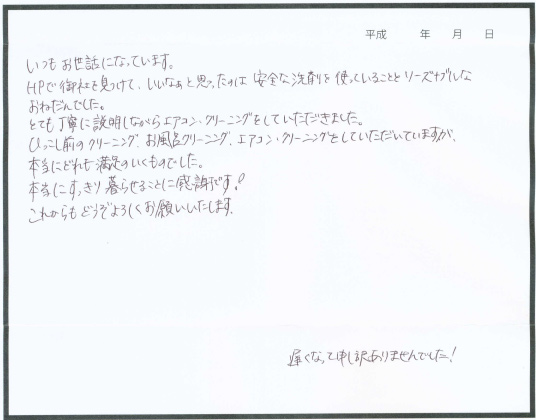 平成　　年　　月　　日
いつもお世話になっています。
HPで御社を見つけて、いいなぁと思ったのは安全な洗剤を使っていることとリーズナブルな
おねだんでした。
とても丁寧に説明しながらエアコン・クリーニングをしていただきました。
ひっこし前のクリーニング、お風呂クリーニング、エアコン・クリーニングをしていただいていますが、
本当にどれも満足のいくものでした。
本当にすっきり暮らせることに感謝です！
これからもどうぞよろしくお願いいたします。
遅くなって申し訳ありませんでした！